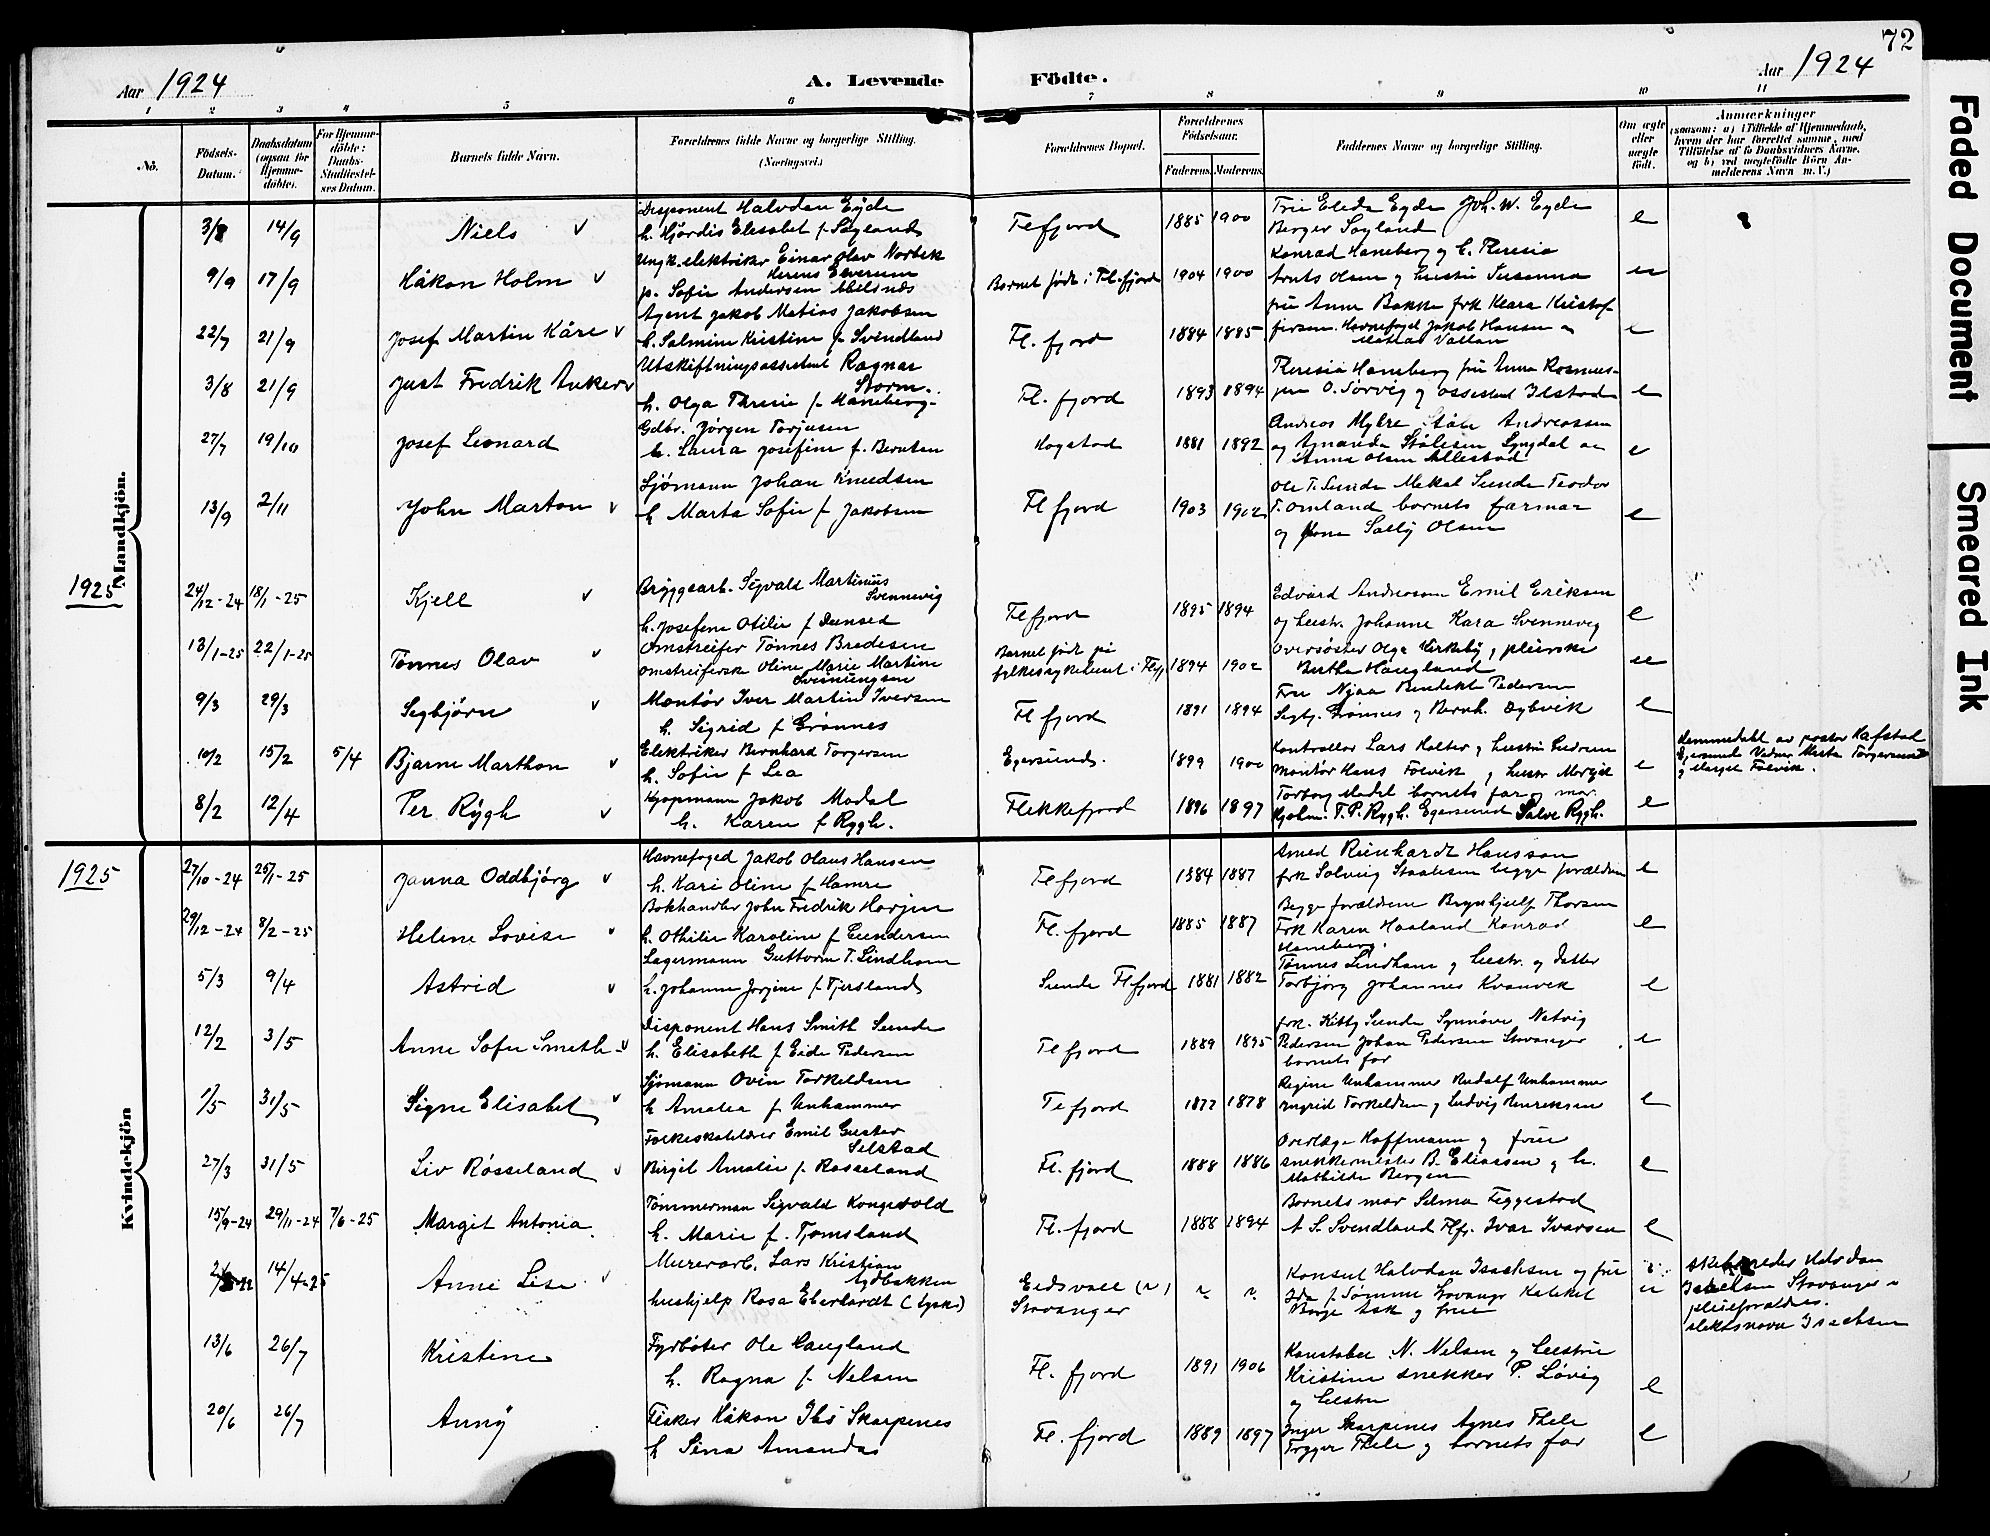 72
Aar 1924 A. Levende Födte. Aar 1924
1 2 3 4 5 6 7 8 9 10 11
No. Födsels-Datum. Daabsdatum (ogsaa for Hjemme-döbte). For Hjemme-döbte: Daabs-Stadfæstel-ses Datum. Barnets fulde Navn. Forældrenes fulde Navne og borgerlige Stilling. (Næringsvei.) Forældrenes Bopæl. Forældrenes Födselsaar. Faderens. Moderens. Faddernes Navne og borgerlige Stilling. Om ægte eller uægte födt. Anmærkninger (saasom: a) i Tilfælde af Hjemmedaab, hvem der har forrettet samme, med Tilföielse af to Daabsvidners Navne, og b) ved uægtefödte Börn Anmelderens Navn m. V.)
Mandkjön.
3/8 14/9 Niels v Disponent Halvdan Eyde
h. Hjördis Elesabet f. Søyland Flefjord 1885 1900 Frue Eleda Eyde Joh. W. Eyde
Berger Søyland e
9/9 17/9 Håkon Holm v Ungk. elektriker Einar Olav Norbek
Herens Elverum
p. Sofie Andersen Abelsnes Barnet födt i Fl.fjord 1904 1900 Konrad Haneberg og h. Theresia
Arnts Olsen og hustru Susanna ue
22/7 21/9 Josef Martin Kåre v Agent Jakob Matias Jakobsen
h. Salmine Kristine f. Svindland Fl. fjord 1884 1885 frue Anna Bakke frk Klara Kristof
fersen. Havnefoged Jakob Hansen e
3/8 21/9 Just Fredrik Anker v Utskiftningsassistent Ragnar
Storm.
h. Olga Thresie f. Haneberg. Fl. fjord 1893 1894 Theresia Haneberg frue Anna Rasmus-
sen O. Sørvig og assistent Ilstad e
27/7 19/10 Josef Leonard Gdbr. Jørgen Torjusen
h. Laura Josefine f. Berntsen Hogstad 1881 1892 Andreas Myhre Ståle Andreassen
og Amanda Stålesen Lyngdal og
Anna Olsen Allestad e
13/9 2/11 John Marton v Sjømann Johan Knudsen
h Marta Sofie f Jakobsen Fl fjord 1903 1902 Ole T. Sunde Mekal Sunde Teodor
T. Omland barnets farmor
og frue Sally Olsen e
1925
24/12-24 18/1-25 Kjell v Bryggearb. Sigvald Martinius
Svennevig
h. Josefine Otilie f Dunsed Flefjord 1895 1894 Edvard Andreassen Emil Eriksen
og hustr. Johanne Kara Svennevig e
13/1-25 22/1-25 Tønnes Olav v Omstreifer Tönnes Bredesen
omstreiferske Oline Marie Martine
Svenningsen Barnet födt på
fylkessykehuset i Flfj 1894 1902 Oversøster Olga Virkeby, pleierske
Bertha Haugland ue
9/3 29/3 Segbjörn v Montør Iver Martin Iversen
h. Sigrid f Grønnes Fl fjord 1891 1894 Frue Njaa Bendikte Pedersen
Segbj. Grønnes og Bernh. Dybvik e
10/2 15/2 5/4 Bjarne Marthon v Elektriker Bernhard Torgersen
h. Sofie f Lea Egersund. 1899 1900 Kontrollør Lars Holter og hustru Gudrun
Montør Hans Folvik og hustr Margit e Hemmedøbt av pastor Kafstad
Egersund Vedner Marta Torgersen
og Margit Folvik.
8/2 12/4 Per Rygh v Kjøpmann Jakob Modal
h. Karen f Rygh. Flekkefjord 1896 1897 Torborg Modal barnets far og mor
Kjøbm. T. P. Rygh. Egersund Salve Rygh. e
1925
Kvindekjön
27/10-24 25/1-25 Janna Oddbjörg v Havnefoged Jakob Olaus Hansen
h. Kari Oline f Hamre Flefjord 1884 1887 Amed Reinhardt Hansson
frk Solveig Staalesen begge forældrene e
29/12-24 8/2-25 Helene Lovise v Bokhandler John Fredrik Horjen
h. Othilie Karoline f Gundersen Fl. fjord 1885 1887 Begge forældrene Brynhjulf Thorsen
Frk Karen Haaland Konrad
Haneberg. e
5/3 9/4 Astrid v Lagermann Guttorm T. Lindham
h. Johanne Jorgine f. Fjersland Sunde Flfjord 1881 1882 Tønnes Lindham og hustr. og Datter
Torbjörg Johannes Kvanvik e
12/2 3/5 Anne Sofie Smith v Disponent Hans Smith Sunde
h. Elisabeth f Eide Pedersen Flefjord 1889 1895 frk. Kitty Sunde Synnøve Natvig
Pedersen Johan Pedersen Stavanger
barnets far e
1/5 31/5 Signe Elisabet v Sjømann Ovin Torkeldsen
h Amalia f Unhammer Flefjord 1877 1878 Regine Unhammer Rudolf Unhammer
Ingrid Torkeldsen og Ludvig Henriksen e
27/3 31/5 Liv Røsseland v Folkeskolelærer Emil Gustav
Selstad
Birgit Amalie f. Røsseland Fl. fjord 1888 1886 Overlæge Hoffmann og frue
snekkermester B. Eliassen og h.
Mathilde Bergen e
15/9-24 29/11-24 7/6-25 Margit Antonia Tømmerman Sigvald Kongevold
h. Marie f. Tjomsland Fl. fjord 1888 1894 Barnets mor Selma Feggestad
A S. Svendland Flfj. Ivar Ivarsen e
14/4-25 Anne Lise v Murerarb. Lars Kristian
Nydbakken
hushjelp Rosa Eberhardt (tysk) Eidsvall (n)
Stavanger Konsul Halvdan Isachsen og frue
Ida f. Sømme Stavanger Kateket
Børge Ask og frue u skibsreder Halvdan
Isachsen Stavanger
pleieforældre.
slektsnavn Isachsen
13/6 26/7 Kristine Fyrbøter Ole Haugland
h. Ragna f. Nelsen Fl. fjord 1891 1906 Konstabel N. Nelsen og hustru
Kristine snekker P. Løvig
og hustru e
20/6 26/7 Anny Fisker Håkon Ibs Skarpenes
h Sina Amandas Fl. fjord 1889 1897 Inger Skarpenes Agnes Thele
Trygger Thele og barnets far e
Faded Document
Smeared Ink